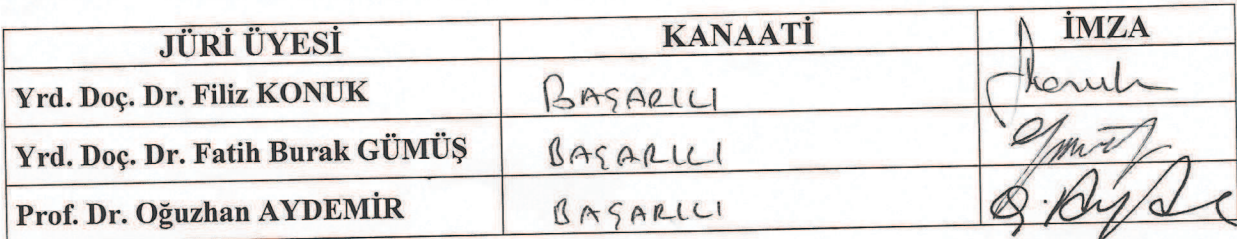 JÜRİ ÜYESİ KANAATİ İMZA
Yrd. Doç. Dr. Filiz KONUK BAŞARILI
Yrd. Doç. Dr. Fatih Burak GÜMÜŞ BAŞARILI
Prof. Dr. Oğuzhan AYDEMİR BAŞARILI